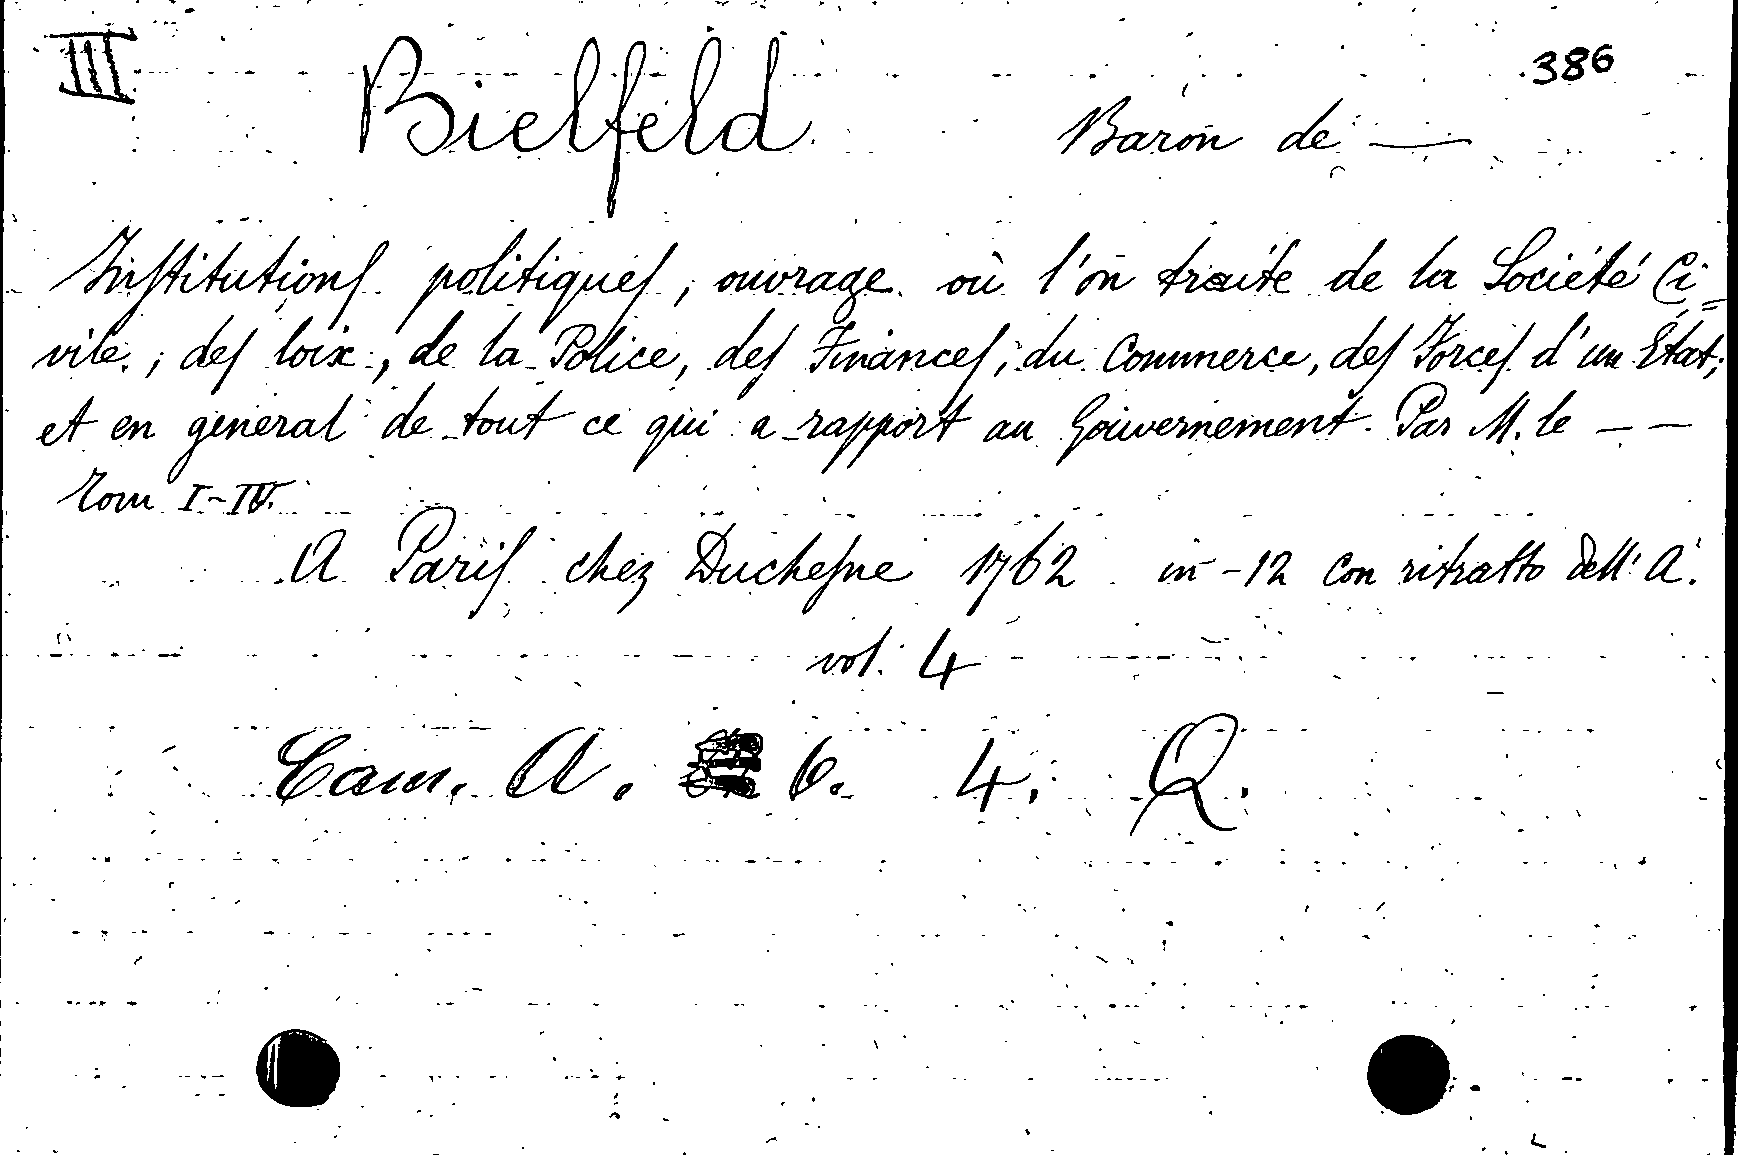 III
386
Bielfeld Baron de —
Inſtitutionſ politiqueſ, ouvrage où l'on traite de la Société Ci=
vile, deſ loix, de la Police, deſ Financeſ, du Commerce, deſ Forceſ d'un Etat;
et en general de tout ce qui a rapport au Gouvernement. Par M. le — —
Tom I-IV.
A Pariſ chez Ducheſne 1762 in-12 con ritratto dell'A.
vol. 4
Cam. A. 6. 4. Q.